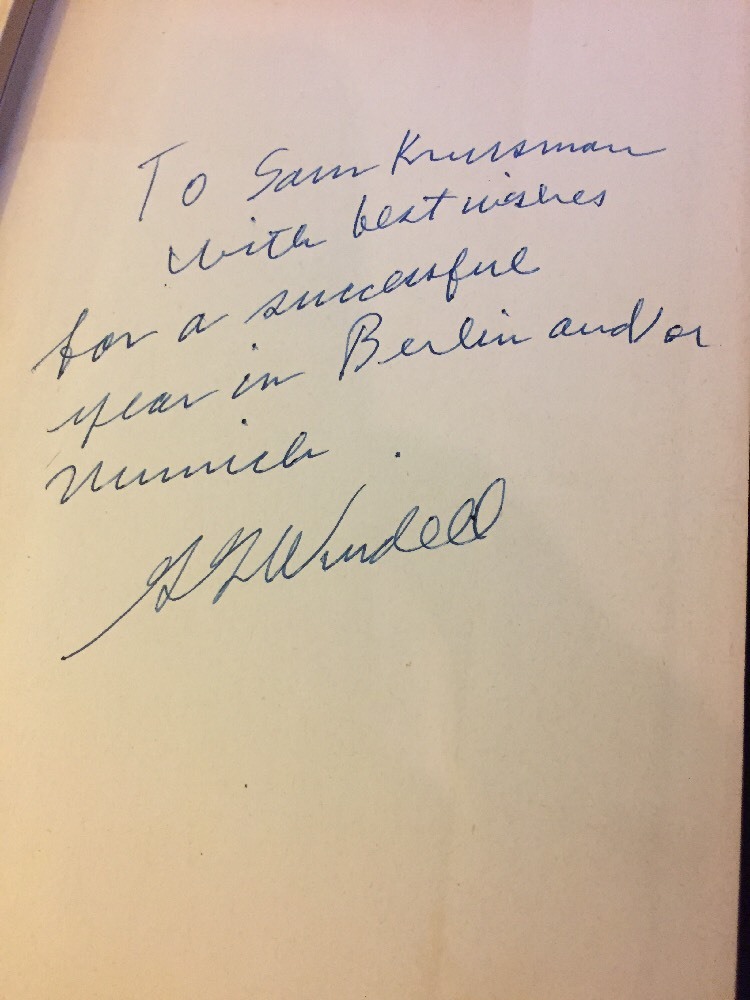 To Sam Krussman
with best wishes
for a successful
year in Berlin and/or
Munich.
GGWindell